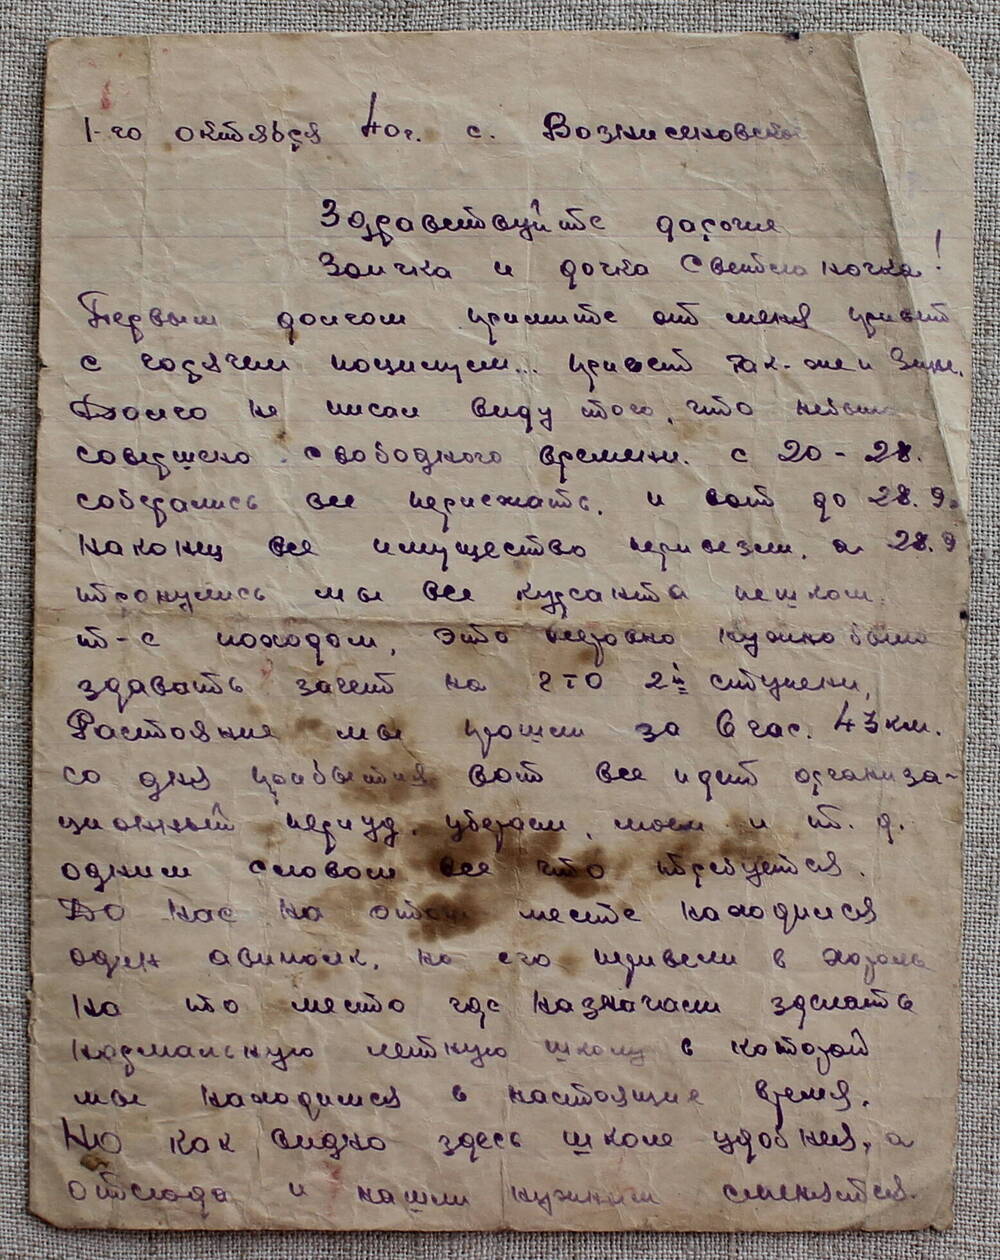 1-го октября 40г. с. Вознисеновское
Здравствуйте дорогие
Заичка и дочка Светланочка!
Первым долгом примите от меня привет
с горячем поцилуем... привет так-же и Зине.
Долго не писал виду того, что небыло
совершено свободного времени. с 20-28.
соберались все периезжать, и вот до 28.9.
наконец все имущество перивезли, а 28.9
тронулись мы все курсанта пешком
т-с походом, это всеровно нужно было
здавать зачет на гто 2й ступени,
Растояние мы прошли за 6 час. 43 км.
со дня прибытия вот все идет организа-
ционный периуд, убераем, моем и т.д.
одним словом все что требуется.
До нас на этом месте находился
один авиполк, но его перивели в
на то место где назначали зделать
нормальную летную школу в которой
мы находимся в настоящие время.
Но как видно здесь школе удобнея, а
отсюда и нашли нужным сменятся.